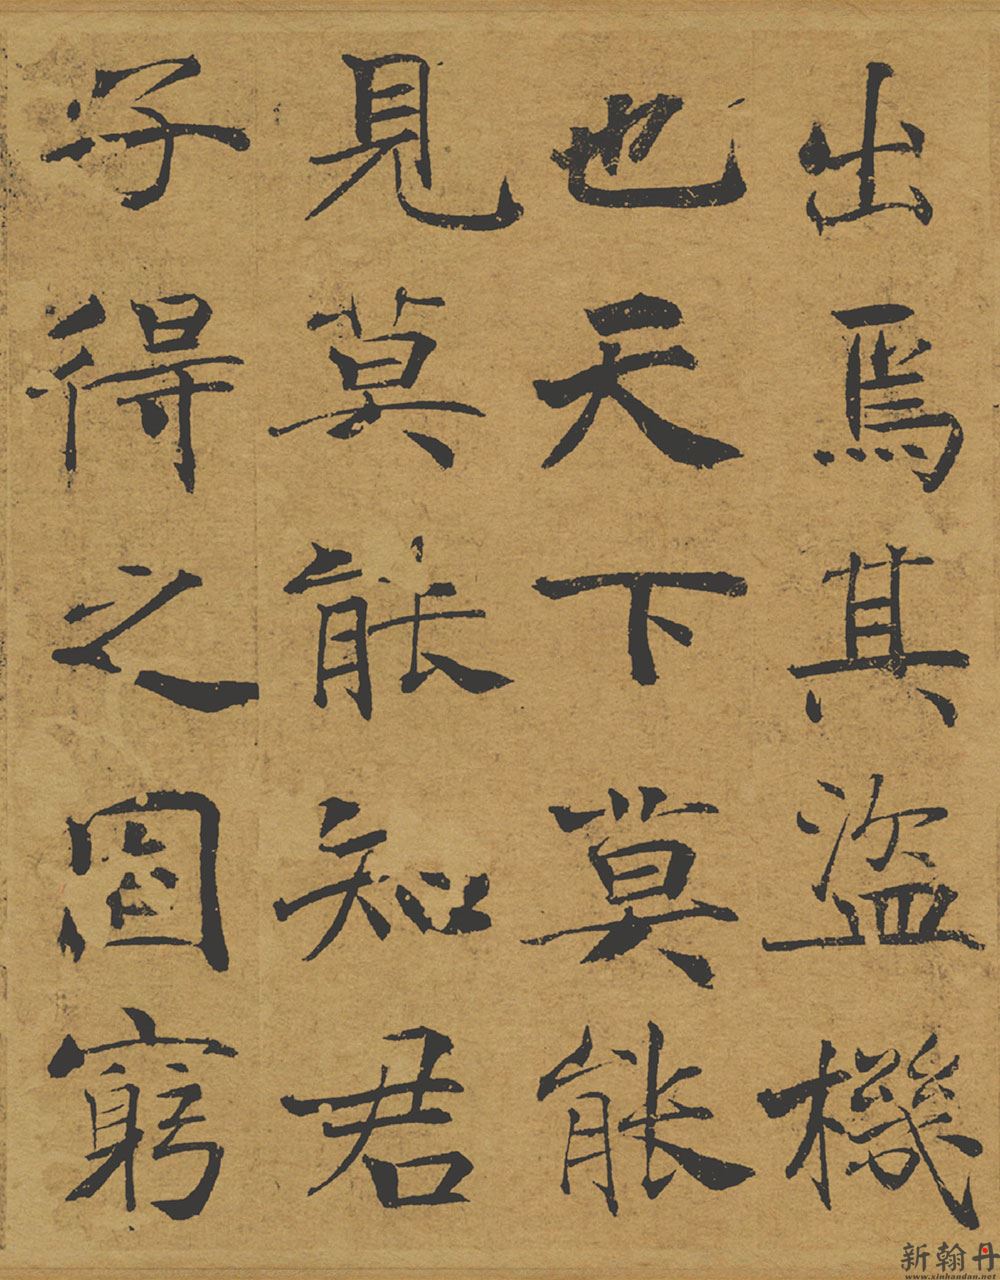 出焉其盜機
也天下莫能
見莫能知君
子得之固窮
新翰丹
www.xinhandan.net